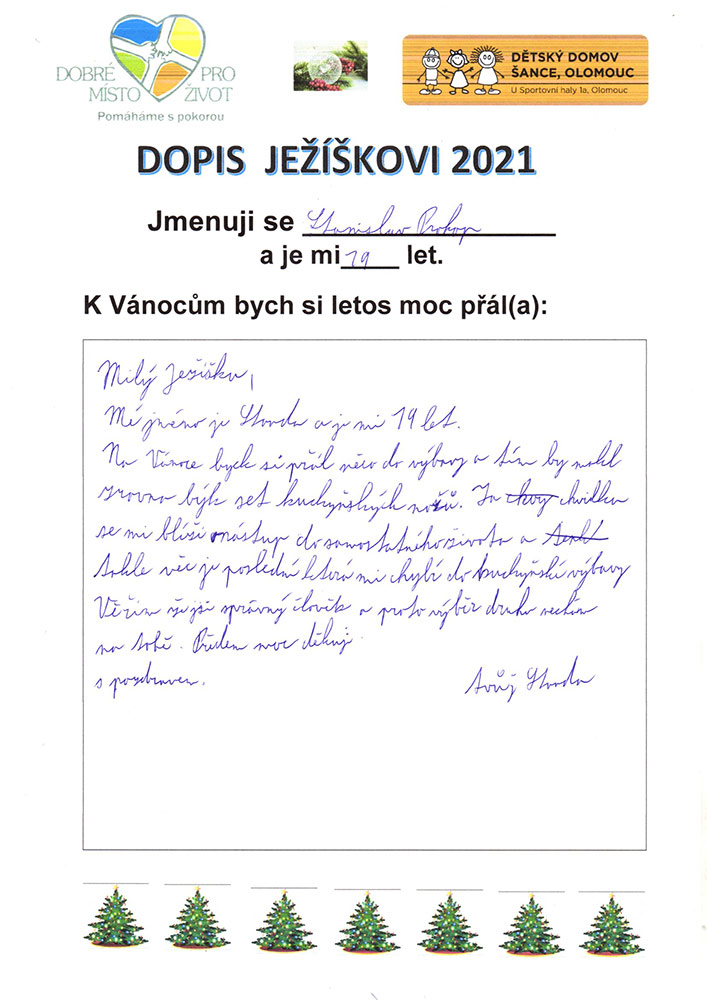 DOBRÉ PRO
MÍSTO ŽIVOT
Pomáháme s pokorou
DĚTSKÝ DOMOV
ŠANCE, OLOMOUC
U Sportovní haly 1a, Olomouc
DOPIS JEŽÍŠKOVI 2021
Jmenuji se Stanislav Prokop
a je mi 19 let.
K Vánocům bych si letos moc přál(a):
Milý Ježíšku,
Mé jméno je Standa a je mi 19 let.
Na Vánoce bych si přál něco do výbavy a tím by mohl
zrovna být set kuchyňských nožů. Za chvilku
se mi blíží nástup do samostatného života a
tahle věc je poslední která mi chybí do kuchyňské výbavy
Věřím že jsi správný člověk a proto výběr druhu nechám
na tobě. Předem moc děkuji.
s pozdravem.
tvůj Standa